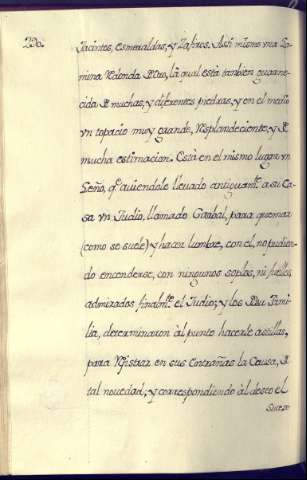 230.
Jacintos, esmeraldas, y Zafiros. Assi mismo vna La-
mina redonda de Oro, la qual està tambien guarne-
cida de muchas, y diferentes piedras, y en el medio
vn topacio muy grande, resplandeciente, y de
mucha estimacion. Està en el mismo lugar vn
Leño, q.e auiendole lleuado antiguam.te a su Ca-
sa vn Judio, llamado Gaabal, para quemar
(como se suele) y hacer lumbre, con el, no pudien-
do encenderse, con ningunos soplos, ni fuelles,
admirados finalm.te el Judio, y los de su Fami-
lia, determinaron al punto hacerle astillas,
para registrar en sus Entrañas la Causa, de
tal nouedad; y correspondiendo àl deseo el
Suces